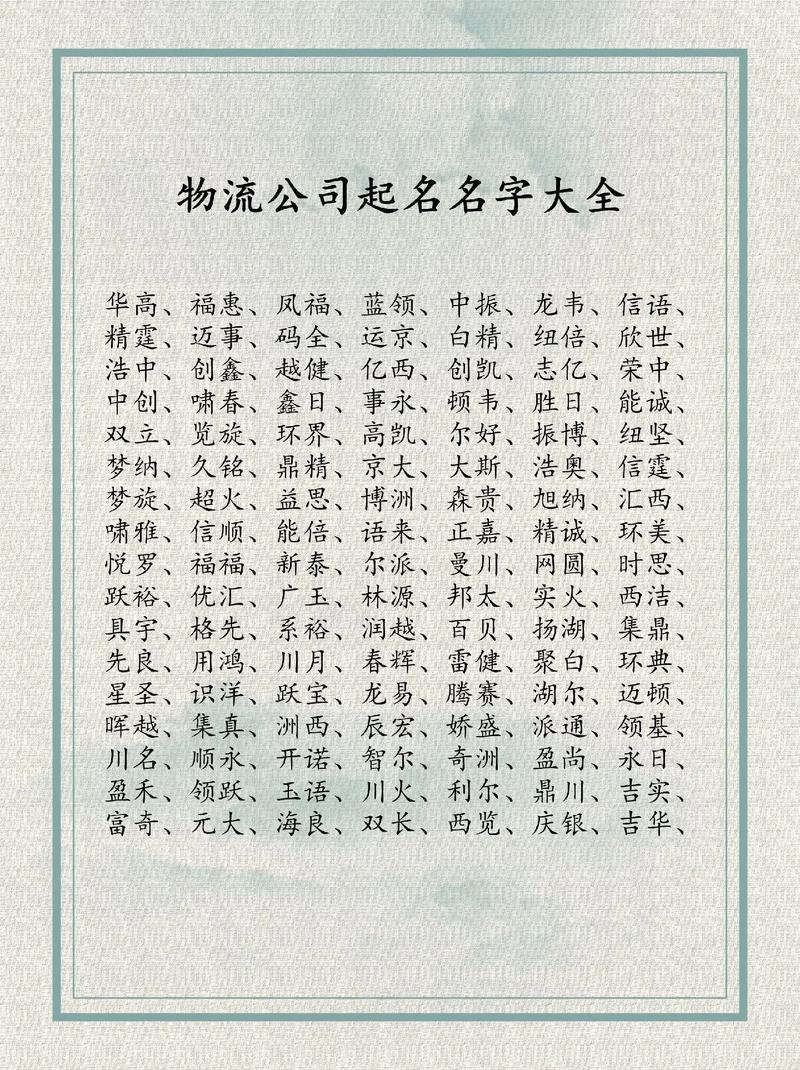 物流公司起名名字大全
华高、福惠、凤福、蓝领、中振、龙韦、信语、
精霆、迈事、码全、运京、白精、纽倍、欣世、
浩中、创鑫、越健、亿西、创凯、志亿、荣中、
中创、啸春、鑫日、事永、顿韦、胜日、能诚、
双立、览旋、环界、高凯、尔好、振博、纽坚、
梦纳、久铭、鼎精、京大、大斯、浩奥、信霆、
梦旋、超火、益思、博洲、森贵、旭纳、汇西、
啸雅、信顺、能倍、语来、正嘉、精诚、环美、
悦罗、福福、新泰、尔派、曼川、网圆、时思、
跃裕、优汇、广玉、林源、邦太、实火、西洁、
具宇、格先、系裕、润越、百贝、扬湖、集鼎、
先良、用鸿、川月、春辉、雷健、聚白、环典、
星圣、识洋、跃宝、龙易、腾赛、湖尔、迈顿、
晖越、集真、洲西、辰宏、娇盛、派通、领基、
川名、顺永、开诺、智尔、奇洲、盈尚、永日、
盈禾、领跃、玉语、川火、利尔、鼎川、吉实、
富奇、元大、海良、双长、西览、庆银、吉华、